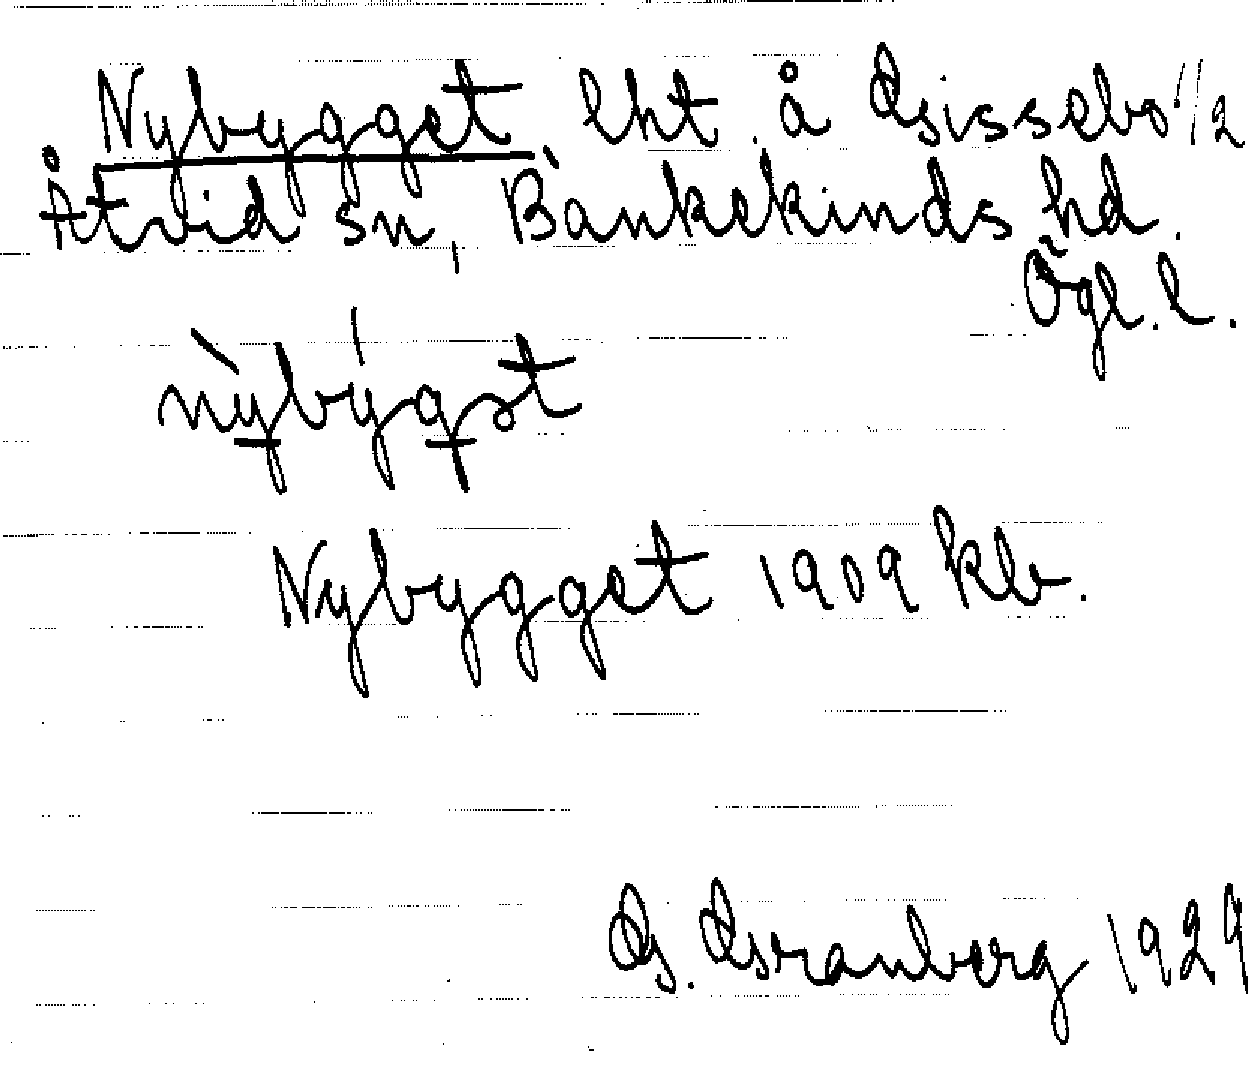 Nybygget lht å Gissebo 1/2
Åtvid sn, Bankekinds hd.
Ögl. l.
nỳbýgət
Nybygget 1909 kb.
G. Granberg 1929